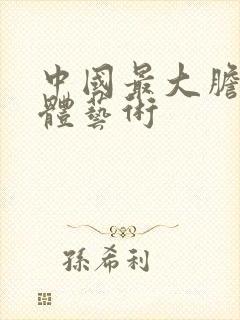 中國最大膽
體藝術
孫希利